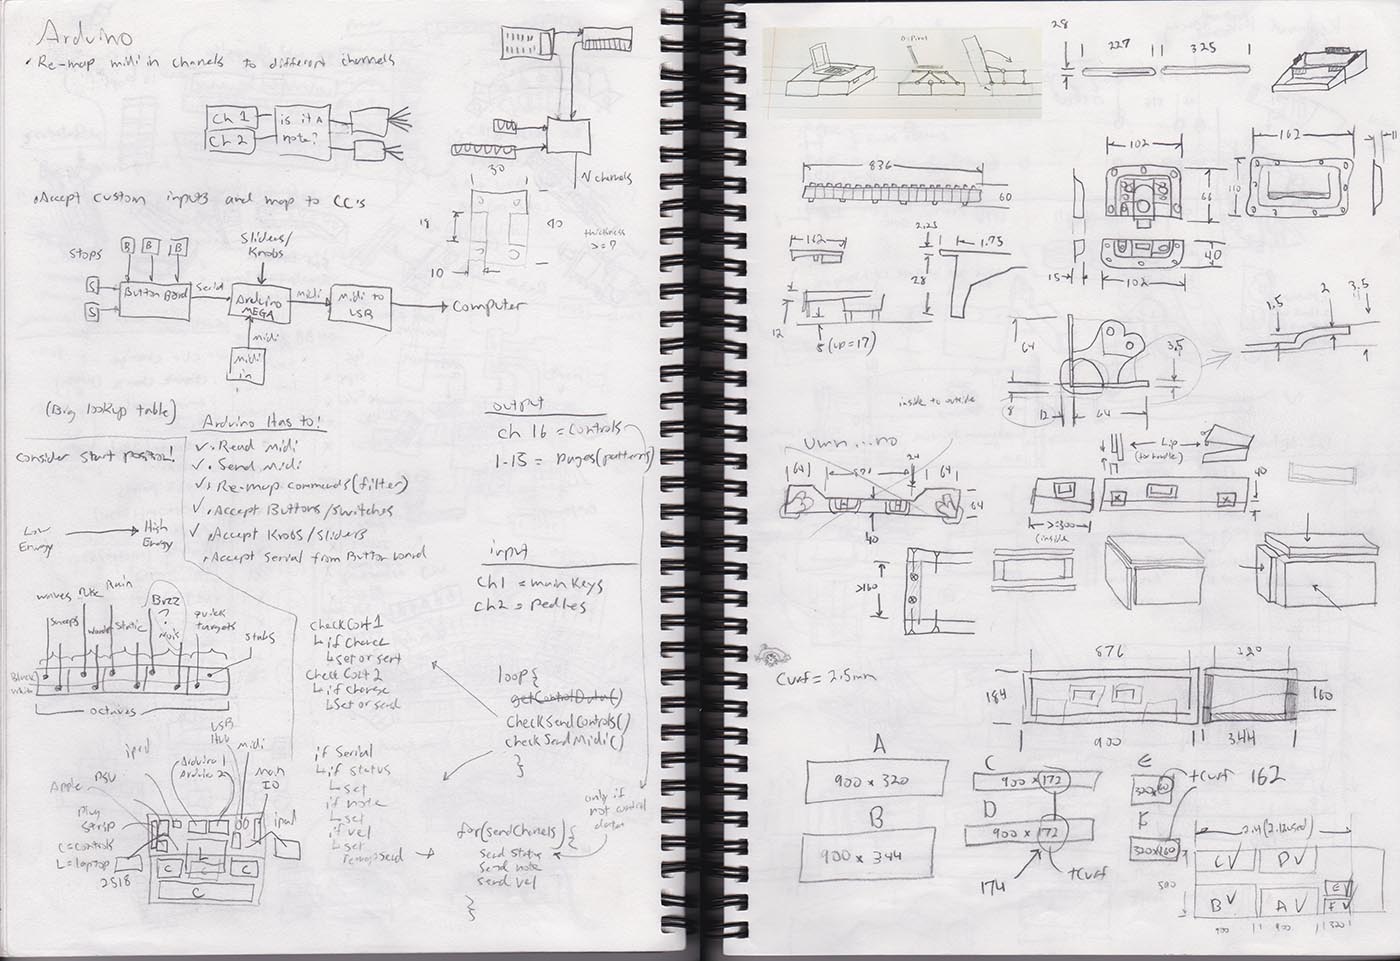 Arduino
• Re-map midi in channels to different channels
Ch 1
Ch 2
is it a
note?
N channels
30
18
40
10
thickness
>= ?
• Accept custom inputs and map to CC's
Stops
B B B
S
S
Button Board
Serial
Sliders/
Knobs
Arduino
MEGA
midi
midi
in
midi
Midi to
USB
Computer
(Big lookup table)
consider start position!
Low
Energy
High
Energy
Arduino Has to!
✓ • Read Midi
✓ • Send Midi
✓ • Re-map commands (filter)
✓ • Accept Buttons/switches
✓ • Accept Knobs/sliders
• Accept Serial from Button board
output
ch 16 = controls
1-15 = pages (patterns)
input
Ch1 = main keys
Ch2 = Pedles
waves
Rain
Sweeps
Static
Buzz
?
Nois
quick
targets
stabs
Black
White
octaves
check Cort 1
↳ if change
↳ set or sent
Check Cort 2
↳ if change
↳ Set or send
if Serial
↳ if status
↳ set
if note
↳ set
if vel
↳ set
remap send
loop {
getControlData()
CheckSendControls()
checkSendMidi()
}
only if
not control
data
for (sendChannels) {
Send Status
Send note
send vel
}
}
ipad
Apple
PSU
Plug
Strip
C = controls
L = laptop
2518
Arduino 1
Arduino 2
USB
Hub
midi
Main
IO
ipad
L
C
C
C
C
28
227
325
836
60
102
66
162
110
11
15
102
40
162
12
5 (up=17)
2.25
1.75
28
64
8
12
64
3.5
1.5
2
3.5
inside to outside
umn...no
64
571
24
64
64
40
Lip
(for handle)
40
>=300
(inside
>160
Curf = 2.5mm
876
184
900
320
160
344
A
900 x 320
B
900 x 344
C
900 x 172
D
900 x 172
174
+Curf
E
320x160
+Curf 162
F
320x160
2.4 (2.12 used)
500
C ✓
D ✓
B ✓
A ✓
E ✓
F ✓
900
900
320